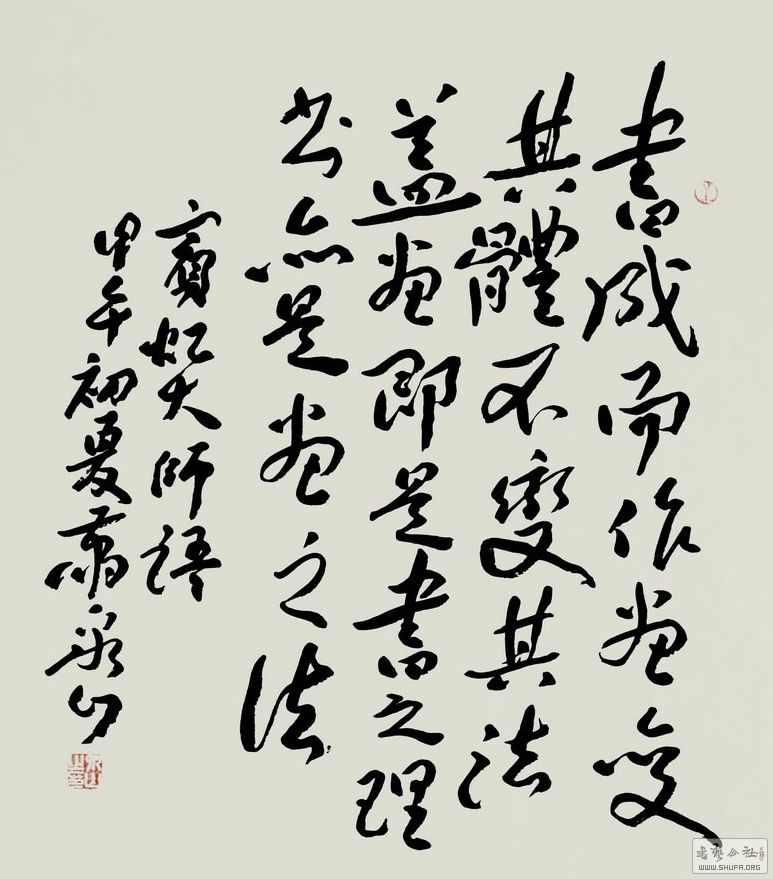 書成而作画變
其體不變其法
蓋画即是書之理
书亦是画之法
賓虹大師語
甲午初夏萧泉山
書藝公社
WWW.SHUFA.ORG